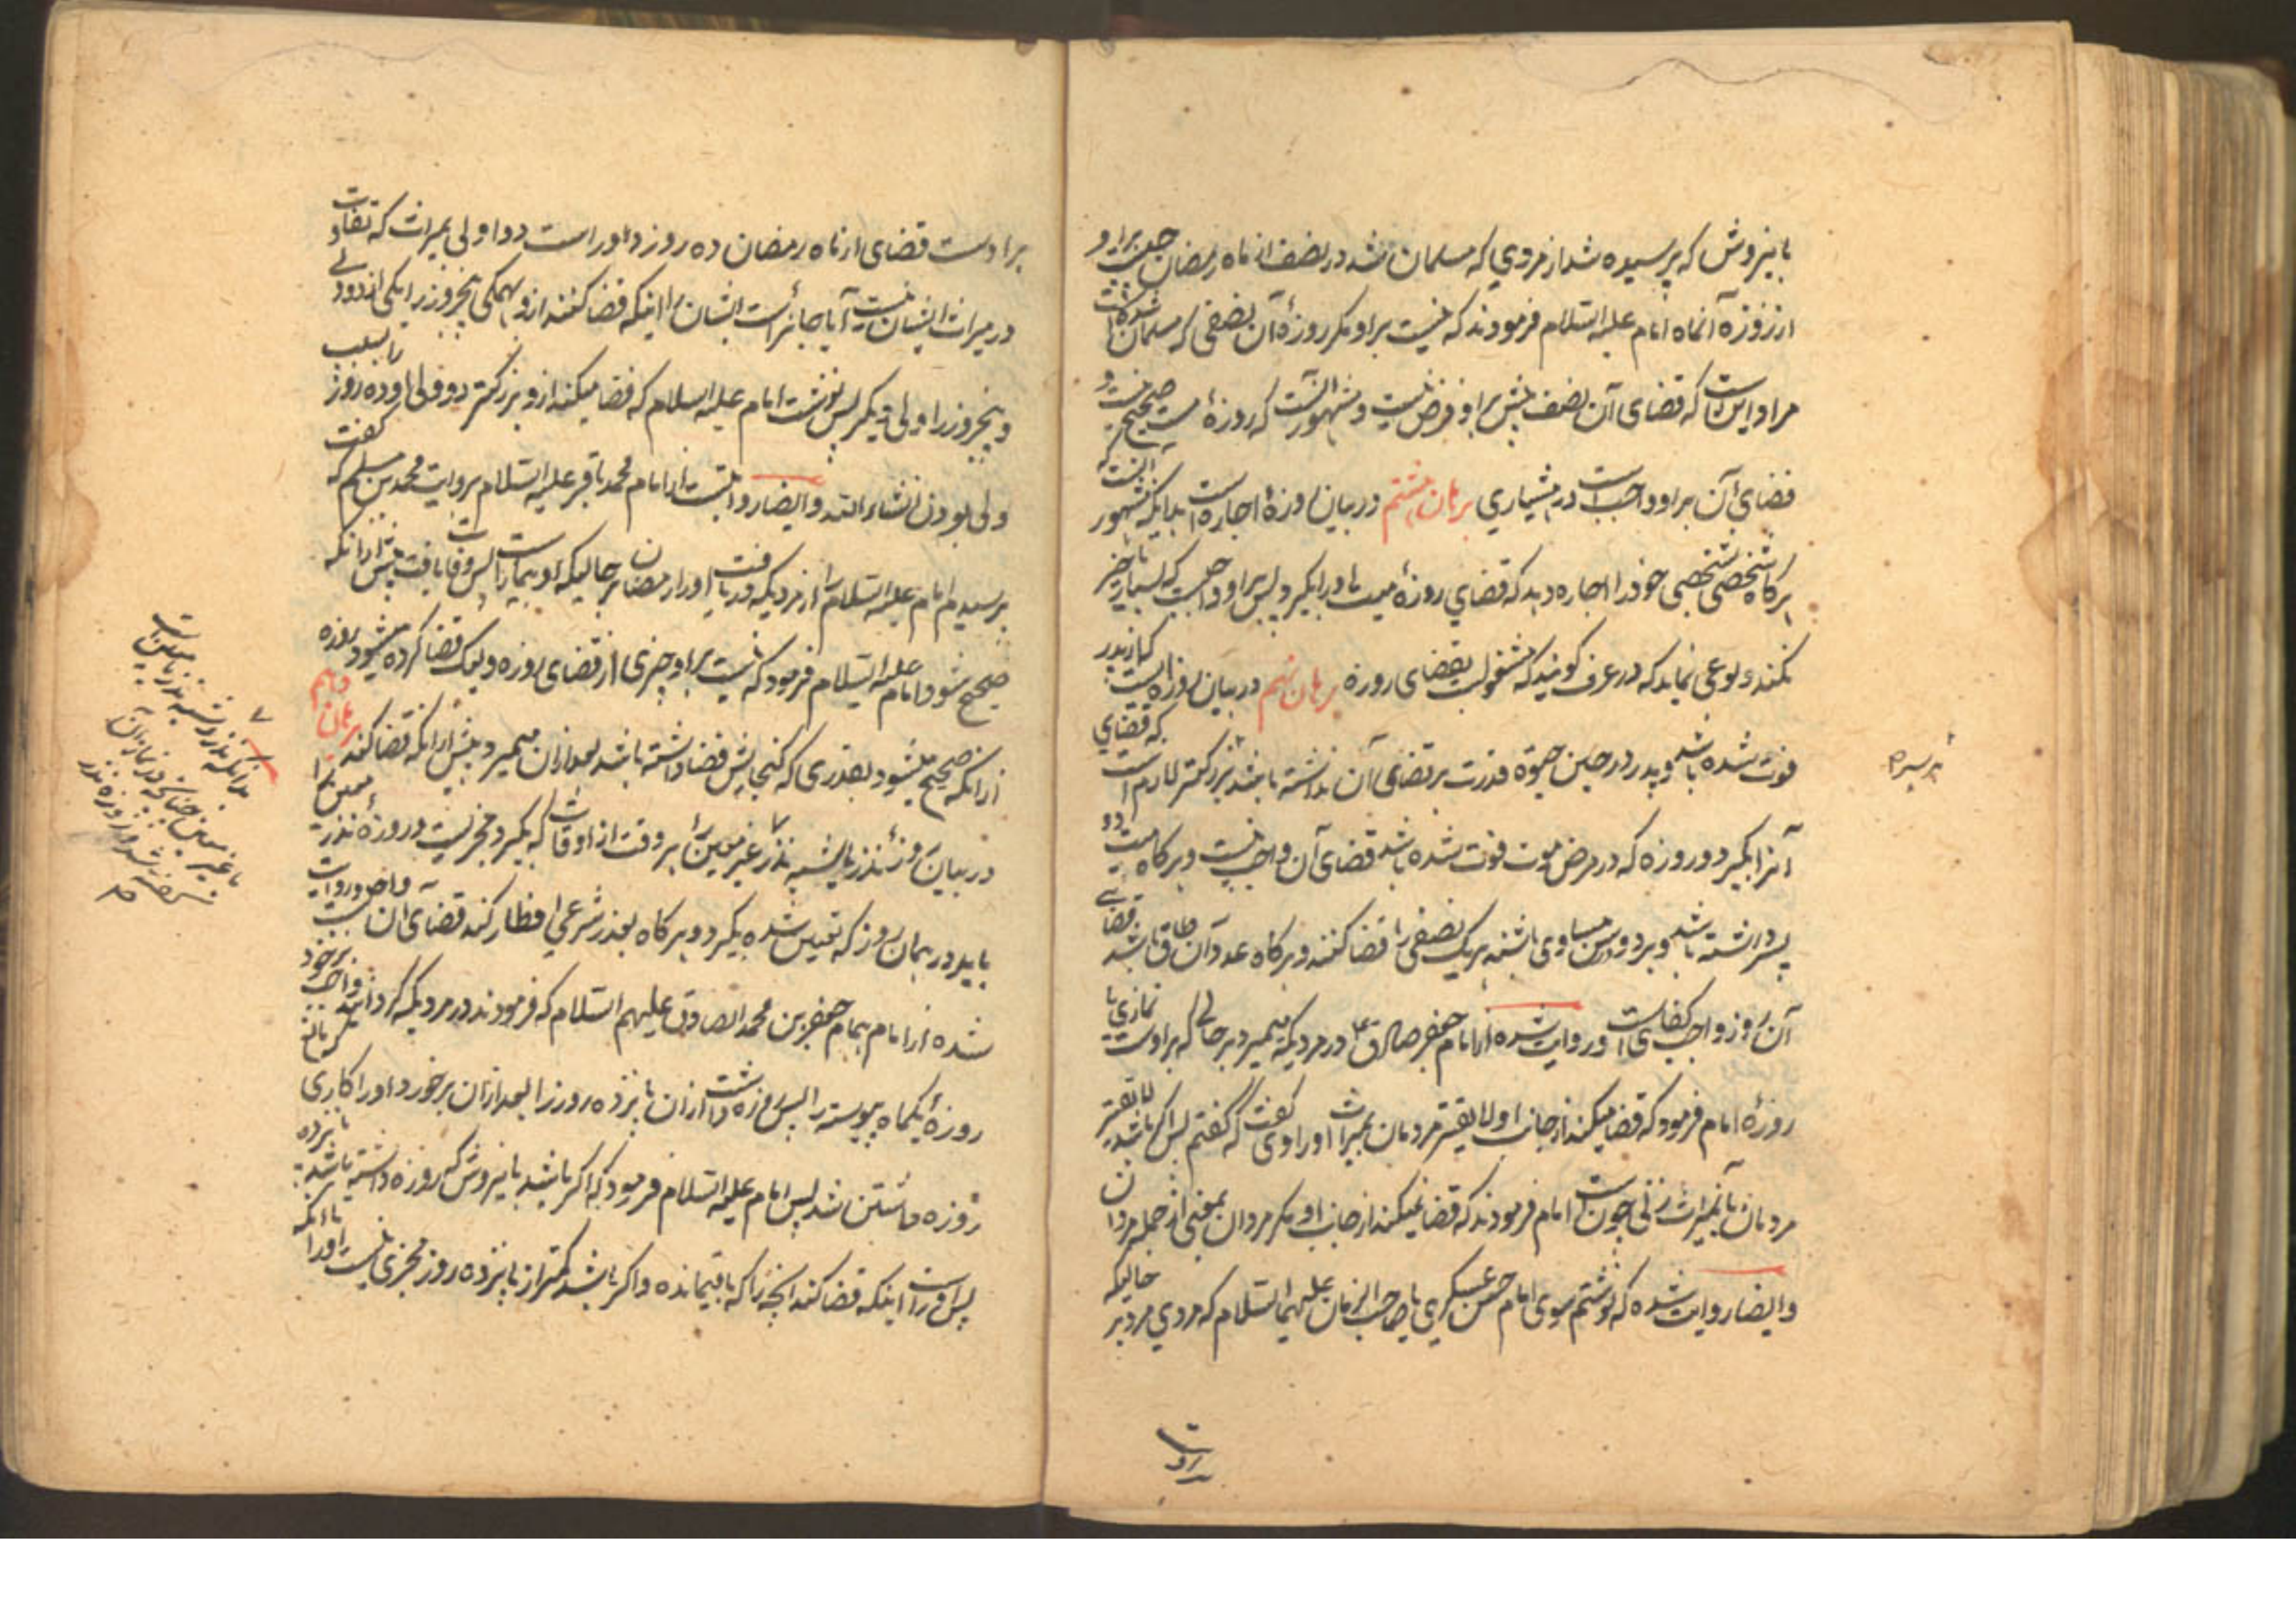 باینروش که پرسیده شد از مردی که مسلمان شد در نصف از ماه رمضان چیست بر او
از روزهٔ آنماه امام علیه السلام فرمودند که نیست بر او مگر روزهٔ آن نصفی که مسلمان شده است
مراد این است که قضای آن نصف پیش بر او فرض نیست و مشهور آنست که روزهٔ مست صحیح نیست و
قضای آن بر او واجب است در هشیاری برهان هشتم در بیان روزهٔ اجاره است بدانکه مشهور آنست که
هرگاه شخصی شخصی خود را اجاره دهد که قضای روزهٔ میت ما در ا بگیرد پس بر او واجبست که بسیار تاخیر
نکند و بوعی نماید که در عرف گویند که مشغولست بقضای روزه برهان نهم در بیان روزه ایست که از پدر
فوت شده باشد و پدر در حین حیوة قدرت بر قضای آن داشته باشد بزرکتر لازم است که قضای
آنرا بگیرد و روزه که در مرض موت فوت شده باشد قضای آن واجب نیست و هرگاه میت دو
پسر داشته باشد و هر دو در سن مساوی باشند هر یک نصفی را قضا کنند و هرگاه عدد آن طاق باشد قضای
آن روز واجب کفای است و روایت شده از امام جعفر صادق ع در مردیکه میمیرد بر حالی که بر اوست نمازی یا
روزهٔ امام فرمود که قضا میکند از جانب او لایقتر مردمان بمیراث او راوی گفت که گفتم پس اگر باشد لایقتر
مردمان بآنمیراث زنی چون است امام فرمودند که قضا نمیکند از جانب او مگر مردان بمعنی از جمله مردان
و ایضا روایت شده که نوشتم سوی امام حسن عسکری یا صاحب الزمان علیهما السلام که مردی مرد بر حالیکه
بر پسر
بر اوست قضای از ماه رمضان ده روز و اوراست دو اولی بمیراث که تفاوت
در میراث ایشان نیست آیا جائز است ایشان را اینکه قضا کنند ازو همگی پنجروز را یکی از دو ولی
و پنجروز را ولی دیگر پس نوشت امام علیه السلام که قضا میکند ازو بزرکتر دو ولی او ده روز
ولی بودن انشاء الله و ایضا روایتست از امام محمد باقر علیه السلام بروایت محمد بن مسلم که گفت
پرسیدم امام علیه السلام را از مردیکه دریافت او را رمضان بر حالیکه او بیمار است پس وفات یافت پیش از آنکه
صحیح شود امام علیه السلام فرمود که نیست بر او چیزی از قضای روزه ولیک قضا کرده میشود روزه
از آنکه صحیح میشود بقدری که گنجایش قضا داشته باشد بعد از آن میمیرد پیش از آنکه قضا کند برهان دهم
در بیان روزهٔ نذر بالیشبه نذر غیر معین را هر وقت از اوقات که بگیرد مجزیست و روزهٔ نذر معین را
باید در همان روز که تعیین شده بگیرد و هرگاه بعذر شرعی افطار کند قضای آن واجب است و روایت
شده از امام همام جعفر بن محمد الصادق علیهم السلام که فرمودند در مردیکه گردانید واجب بر خود
روزهٔ یکماه پیوسته را پس روزه داشت از آن پانزده روز را بعد از آن بر خورد او را کاری
روزه داشتن شد پس امام علیه السلام فرمود که اگر باشد باینروش که روزه داشته باشد پانزده
پس او راست اینکه قضا کند انچه را که باقیمانده و اگر باشد کمتر از پانزده روز مجزی نیست او را تا آنکه